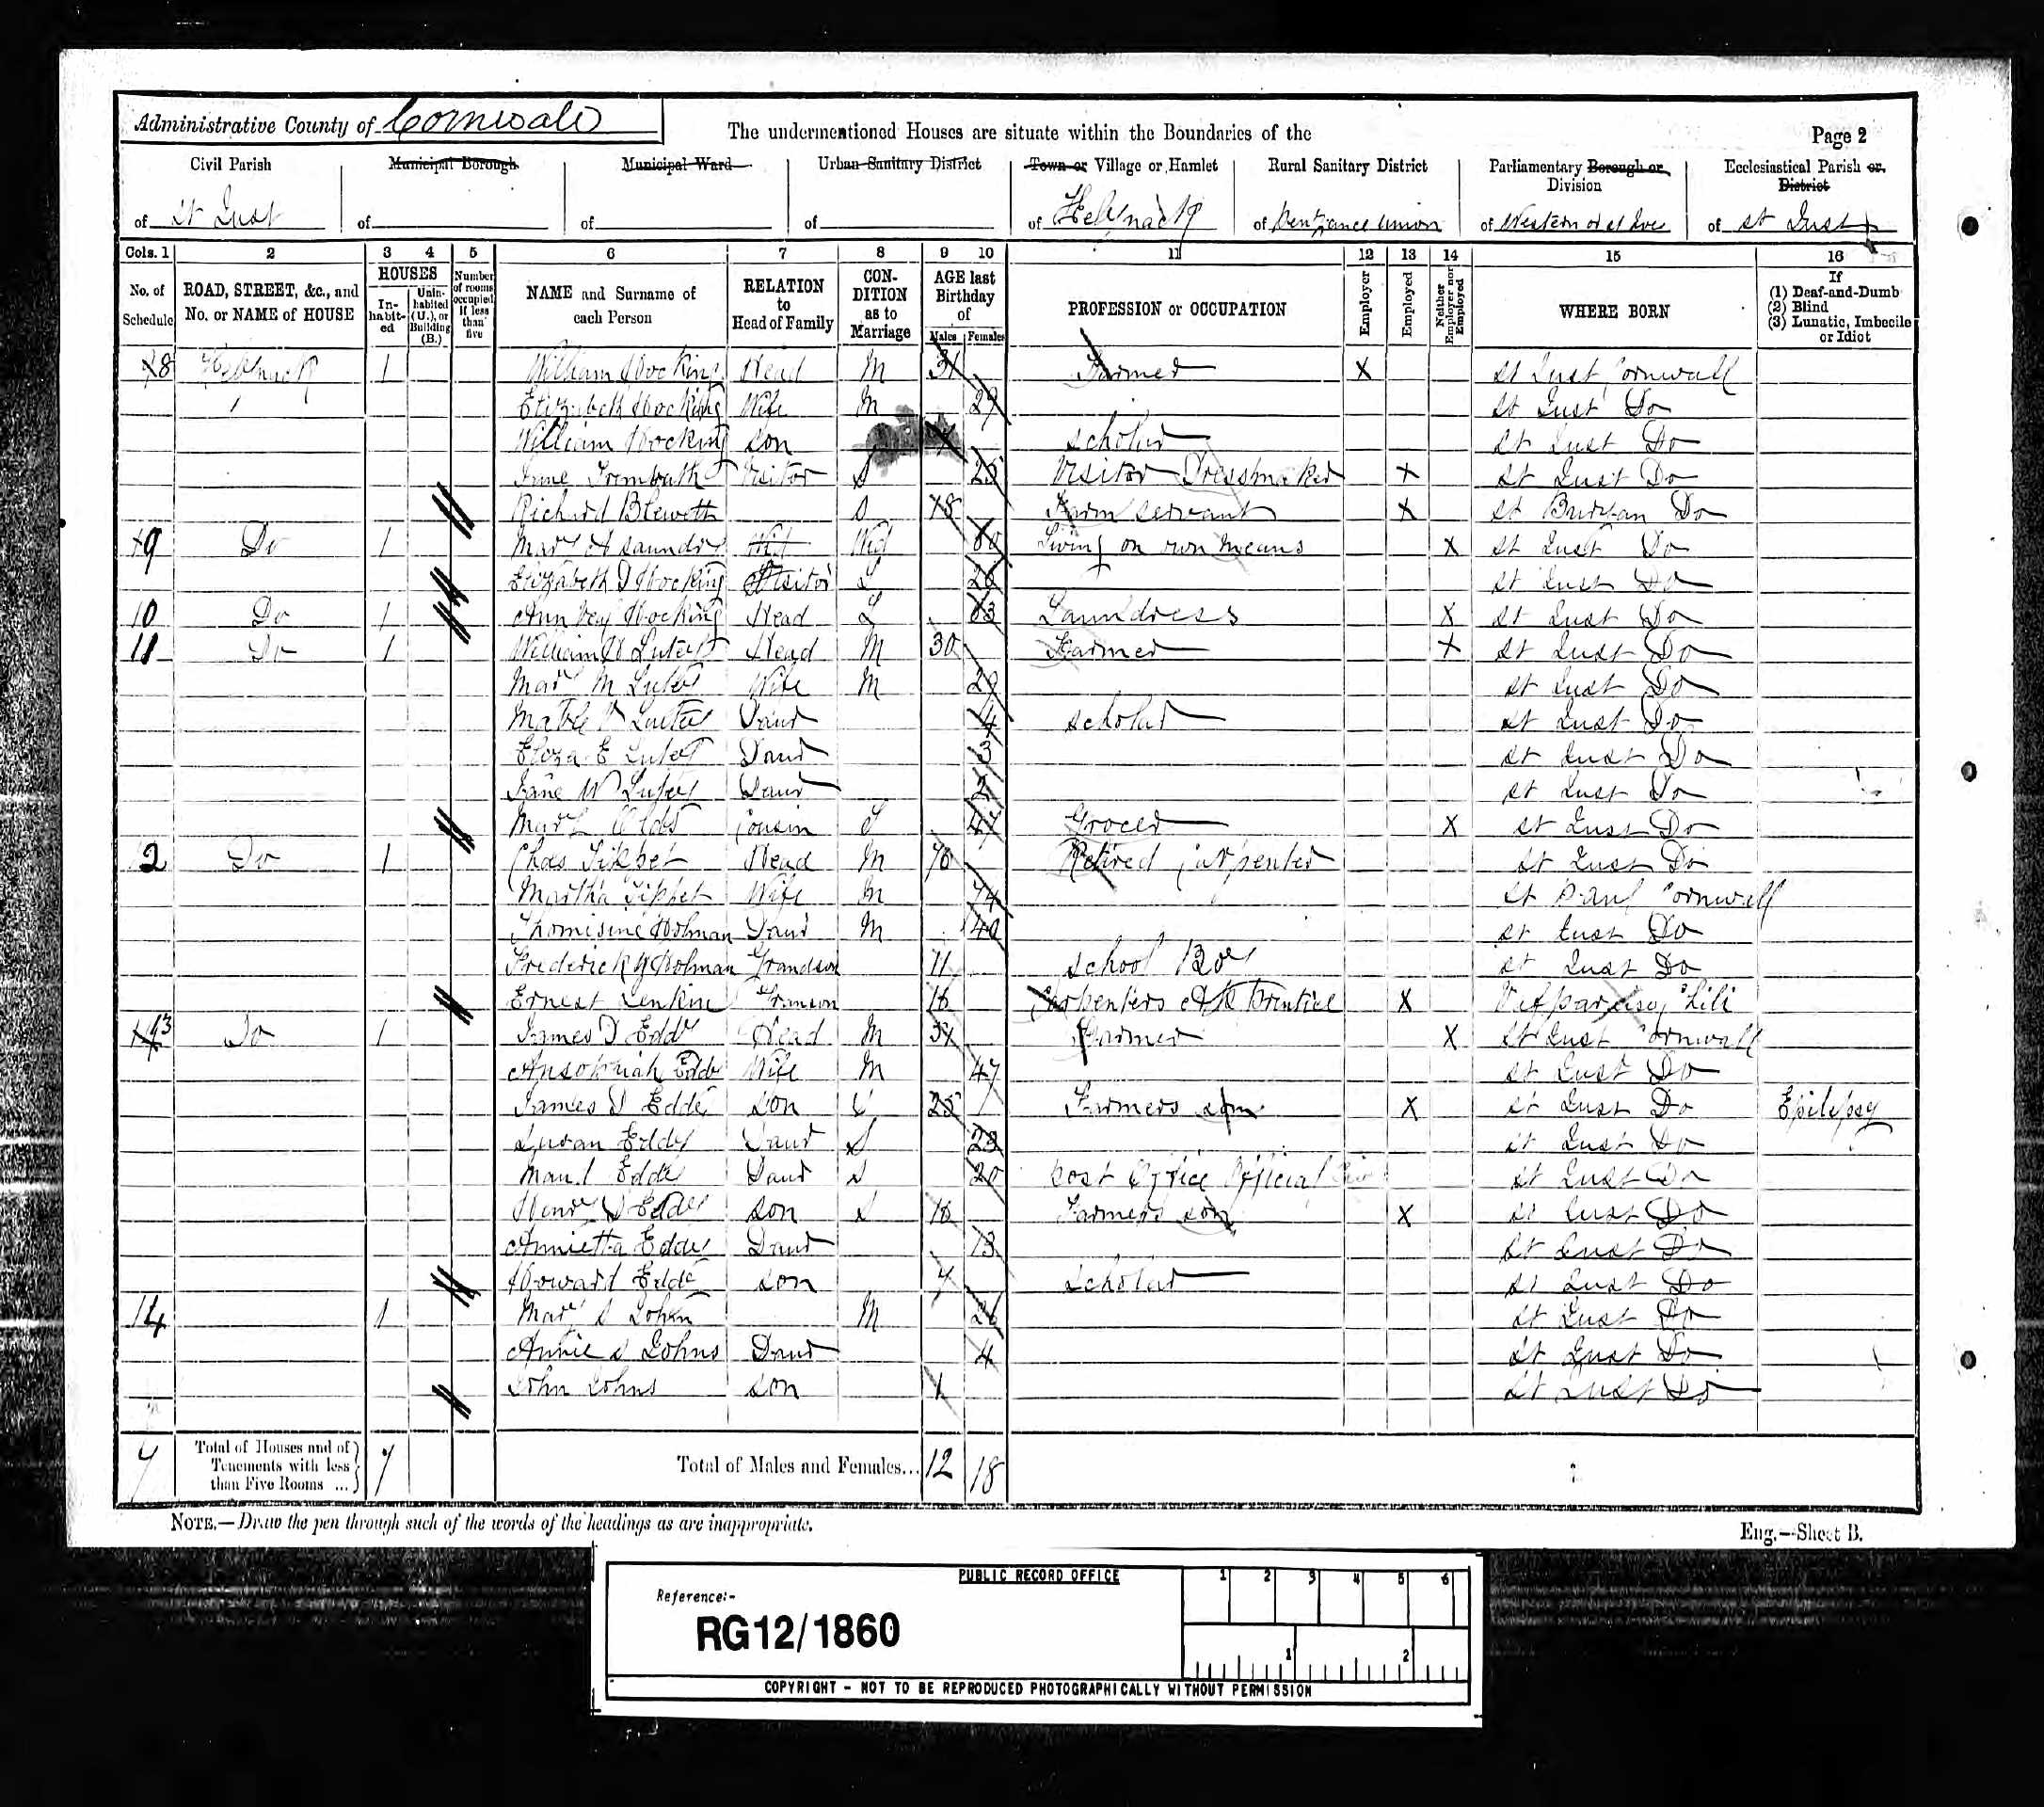 Administrative County of Cornwall
The undermentioned Houses are situate within the Boundaries of the
Page 2
Civil Parish
of St Just
Municipal Borough
of
Municipal Ward
of
Urban Sanitary District
of
Town or Village or Hamlet
of
Rural Sanitary District
of Penzance Union
Parliamentary Borough or Division
of Western or St Ives
Ecclesiastical Parish or District
of St Just
Cols. 1 2 3 4 5 6 7 8 9 10 11 12 13 14 15 16
No. of Schedule
ROAD, STREET, &c., and No. or NAME of HOUSE
HOUSES
In-habit-ed
Unin-habited (U.), or Building (B.)
Number of rooms occupied if less than five
NAME and Surname of each Person
RELATION to Head of Family
CON-DITION as to Marriage
AGE last Birthday of
Males Females
PROFESSION or OCCUPATION
Employer
Employed
Neither Employer nor Employed
WHERE BORN
If
(1) Deaf-and-Dumb
(2) Blind
(3) Lunatic, Imbecile or Idiot
8 1 William Hocking Head M 31 Farmer X St Just Cornwall
Elizabeth Hocking Wife M 29 St Just Do
William Hocking son scholar St Just Do
Jane Trembath Visitor S 25 Visitor Dressmaker X St Just Do
Richard Blewett S 18 Farm servant X St Buryan Do
9 Do 1 Mary A Saundry Wid 80 Living on own means X St Just Do
Elizabeth D Hocking Visitor S St Just Do
10 Do 1 Ann Hocking Head S 63 Laundress X St Just Do
11 Do 1 William Lutey Head M 30 Farmer X St Just Do
Mary M Lutey Wife M 29 St Just Do
Lutey Daur 4 scholar St Just Do
Eliza E Lutey Daur 3 St Just Do
Jane W Lutey Daur St Just Do
Mary cousin S 47 Grocer X St Just Do
12 Do 1 Chas Tippet Head M 76 Retired Carpenter St Just Do
Martha Tippet Wife M 74 St Paul Cornwall
Thomisine Holman Daur M 40 St Just Do
Frederick Holman Grandson 11 School Boy St Just Do
Ernest Granson 16 Carpenters Apprentice X Valparaiso, Chili
13 Do 1 James D Eddy Head M Farmer X St Just Cornwall
Eddy Wife M 47 St Just Do
James D Eddy son 25 Farmers son X St Just Do Epilepsy
Susan Eddy Daur S 23 St Just Do
Eddy Daur S 20 Post Office Official St Just Do
Henry Eddy son S 16 Farmers son X St Just Do
Annietta Eddy Daur 13 St Just Do
Howard Eddy son scholar St Just Do
14 1 Mary S M 26 St Just Do
Annie S Johns Daur 4 St Just Do
John Johns son 1 St Just Do
7 Total of Houses and of Tenements with less than Five Rooms ... 7 Total of Males and Females... 12 18
NOTE.—Draw the pen through such of the words of the headings as are inappropriate.
Eng.—Sheet B.
PUBLIC RECORD OFFICE
1 2 3 4 5 6
Reference:-
RG12/1860
1 2
COPYRIGHT - NOT TO BE REPRODUCED PHOTOGRAPHICALLY WITHOUT PERMISSION